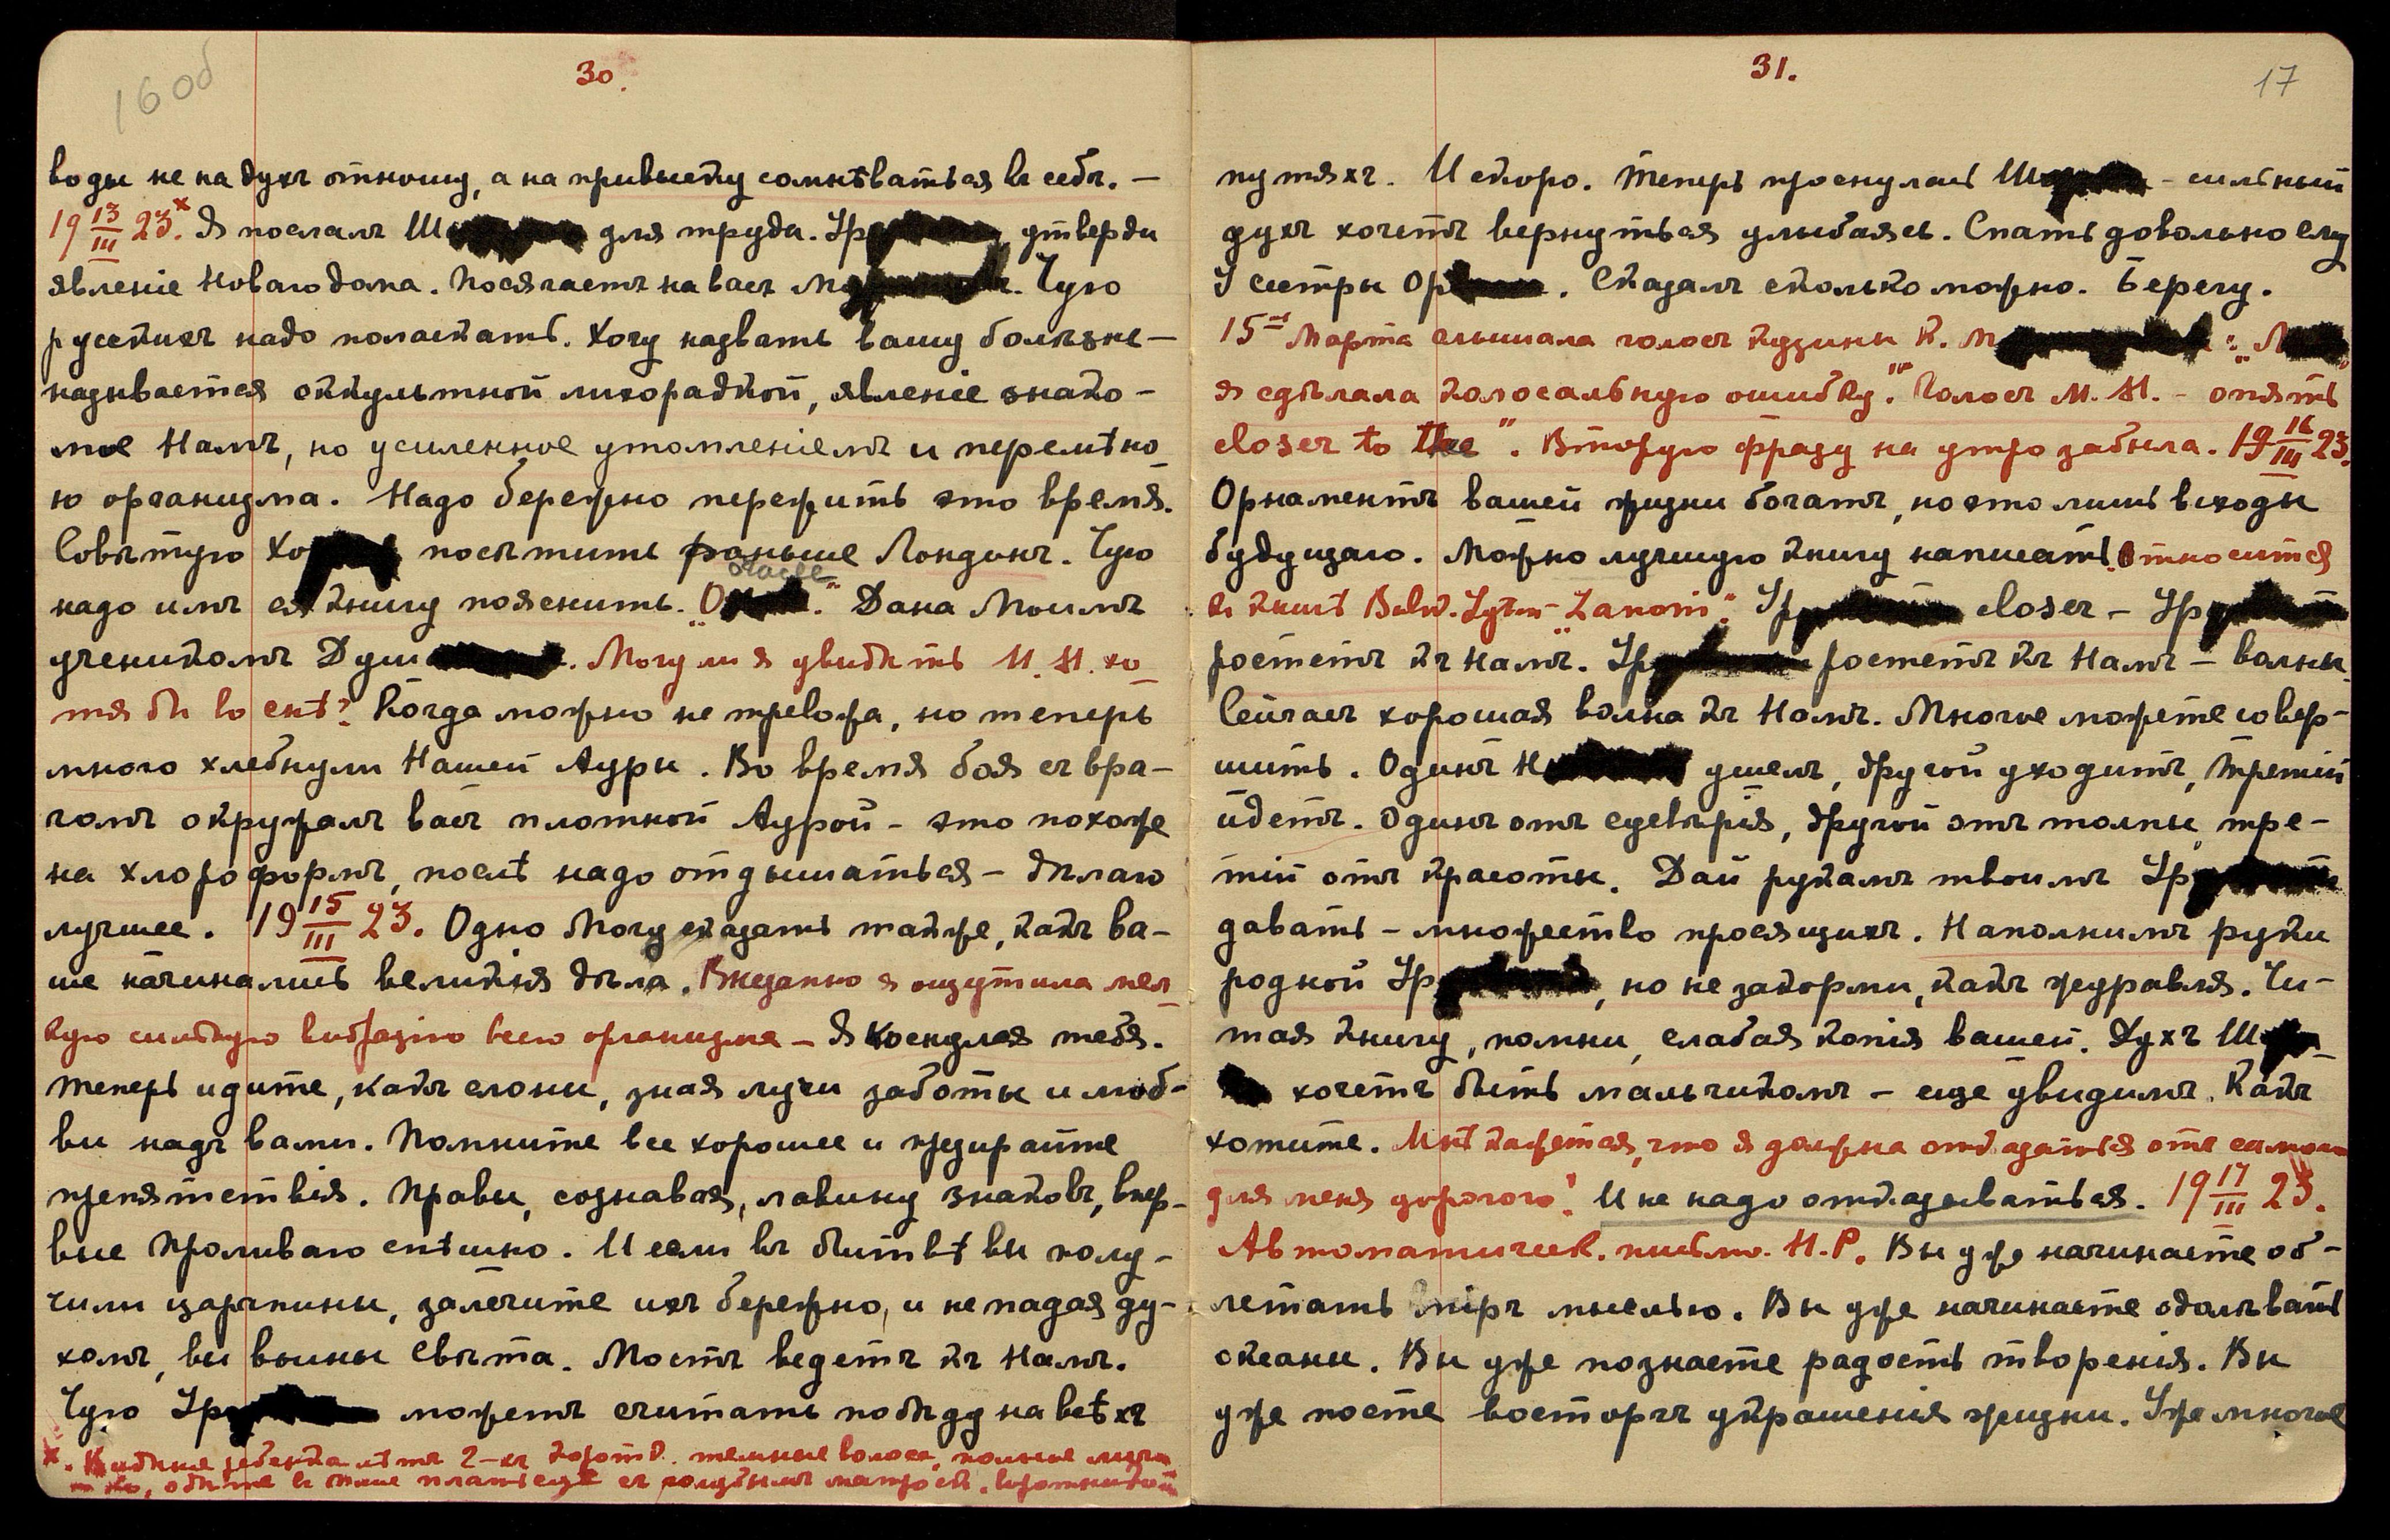 16об
30.
воды не на духъ отношу, а на привычку сомнѣваться въ себѣ. –
19 13/III 23.× Я послалъ Ш для труда. Ур утверди
явленіе Новаго дома. Посягаетъ на васъ М Чую
русскихъ надо поласкать. Хочу назвать вашу болѣзнь –
называется оккультной лихорадкой, явленіе знако-
мое Намъ, но усиленное утомленіемъ и перемѣно-
ю организма. Надо бережно пережить это время.
Совѣтую Хо посѣтить раньше Лондонъ. Чую
надо имъ ея книгу пояснить. „О“ Дана Моимъ
ученикомъ Душ. Могу ли я увидѣть М. М. хо-
тя бы во снѣ? Когда можно не тревожа, но теперь
много хлебнули Нашей Ауры. Во время боя съ вра-
гомъ окружалъ васъ плотной Аурой – это похоже
на хлороформъ, послѣ надо отдышаться – дѣлаю
лучшее. 19 15/III 23. Одно могу сказать также, какъ ва-
ше начинались великія дѣла. Внезапно я ощутила мел-
кую сильную вибрацію всего организма – Я коснулся тебя.
Теперь идите, какъ слоны, зная лучи заботы и люб-
ви надъ вами. Помните все хорошее и презирайте
препятствія. Правы, сознавая, лавину знаковъ, впер-
вые проливаю спѣшно. И если въ битвѣ вы полу-
чили царапины, залечите ихъ бережно, и не падая ду-
хомъ, вы воины Свѣта. Мостъ ведетъ къ Намъ.
Чую Ур можетъ считать побѣду на всѣхъ
×. Видѣніе ребенка лѣтъ 2-хъ темные волосы, полное
одѣтое въ платьеце съ голубымъ матроск. воротникомъ
31.
17
путяхъ. И скоро. Теперь проснулась Ш – сильный
духъ хочетъ вернуться улыбаясь. Спать довольно ему
У сестры Ор. Сказалъ сколько можно. Берегу.
15го Марта слышала голосъ кузины К. М : „М
я сдѣлала колосальную ошибку“. Голосъ М. М. – опять
closer to the“. Вторую фразу на утро забыла. 19 16/III 23.
Орнаментъ вашей жизни богатъ, но это лишь всходы
будущаго. Можно лучшую книгу написать. Относится
къ книгѣ Bulw. Lytton „Zanoni“. Ур closer – Ур
ростетъ къ Намъ. Ур ростетъ къ Намъ – волны.
Сейчасъ хорошая волна къ Намъ. Многое можете совер-
шить. Одинъ Н ушелъ, другой уходитъ, третій
идетъ. Одинъ отъ суевѣрія, другой отъ толпы, тре-
тій отъ красоты. Дай рукамъ твоимъ Ур
давать – множество просящихъ. Наполнимъ руки
родной Ур, но не закорми, какъ журавля. Чи-
тая книгу, помни, слабая копія вашей. Духъ Ш
хочетъ быть мальчикомъ – еще увидимъ. Какъ
хотите. Мнѣ кажется, что я должна отказаться отъ самого
для меня дорогого? И не надо отказываться. 19 17/III 23.
Автоматическ. письмо. Н. Р. Вы уже начинаете об-
летать міръ мыслью. Вы уже начинаете одолѣвать
океаны. Вы уже познаете радость творенія. Вы
уже поете восторгъ украшенія жизни. Уже многое